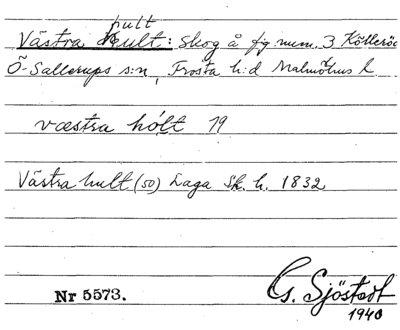 hult
Västra Hult: Skog å fg num. 3 Kölleröd
Ö-Sallerups s:n, Frosta h:d Malmöhus l.
væstra hólt 19
Västra hult (50) Laga Sk. h. 1832
Nr 5573.
G. Sjöstedt
1940